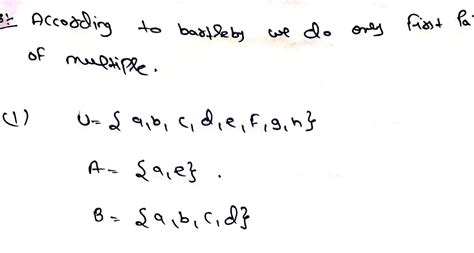 According to bartleby we do only first Pa
of multiple.
(1) U = { a, b, c, d, e, f, g, h}
A = {a, e} .
B = {a, b, c, d}